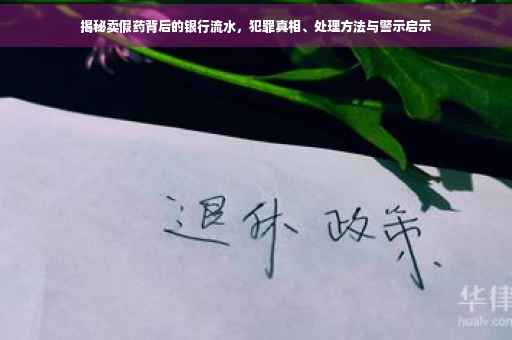 揭秘卖假药背后的银行流水，犯罪真相、处理方法与警示启示
退休 政策
华律
hualv.com